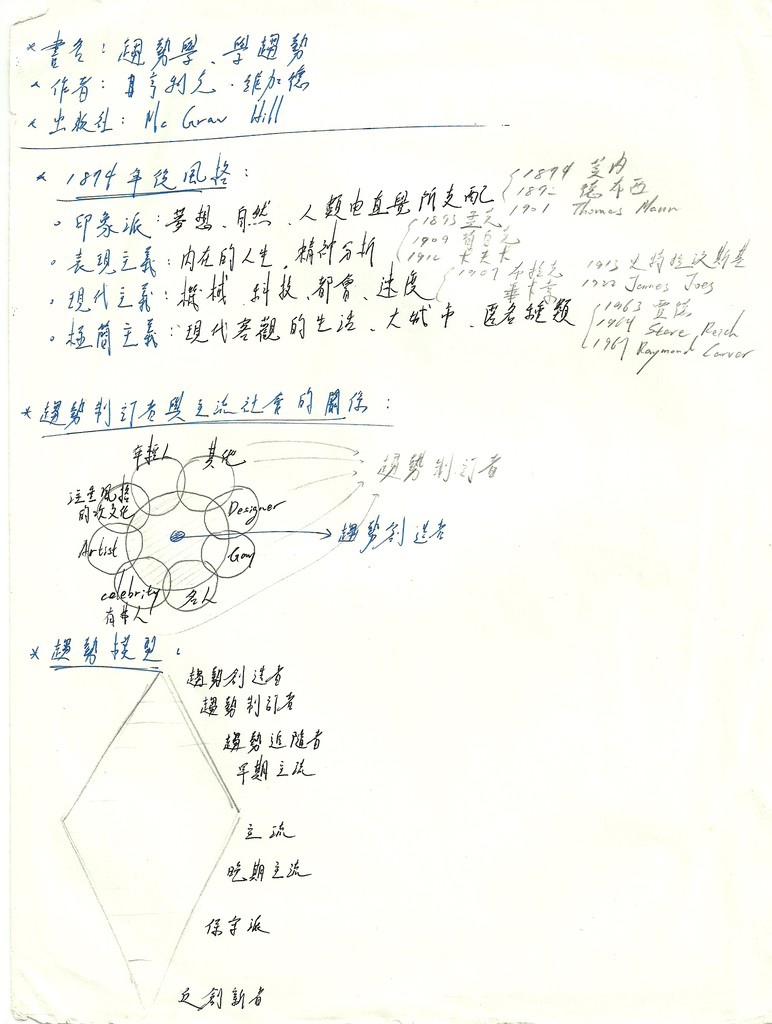 * 書名：趨勢學、學趨勢
* 作者：亨利克·維加德
* 出版社：Mc Graw Hill
* 1894年後風格：
。印象派：夢想、自然、人類由直覺所支配
1894 莫內
1892 德布西
1901 Thomas Mann
。表現主義：內在的人生、精神分析
1893 孟克
1909 荀白克
卡夫卡
。現代主義：機械、科技、都會、速度
1907 布拉克
畢卡索
1913 史特拉汶斯基
1922 James Joes
。極簡主義：現代客觀的生活、大城市、匿名種類
1963 賈德
1964 Steve Reich
1967 Raymond Carver
* 趨勢制訂者與主流社會的關係：
年輕人
其他
注重風格的次文化
Designer
Artist
Gay
celebrity
有錢人
名人
趨勢制訂者
趨勢創造者
* 趨勢模型：
趨勢創造者
趨勢制訂者
趨勢追隨者
早期主流
主流
晚期主流
保守派
反創新者